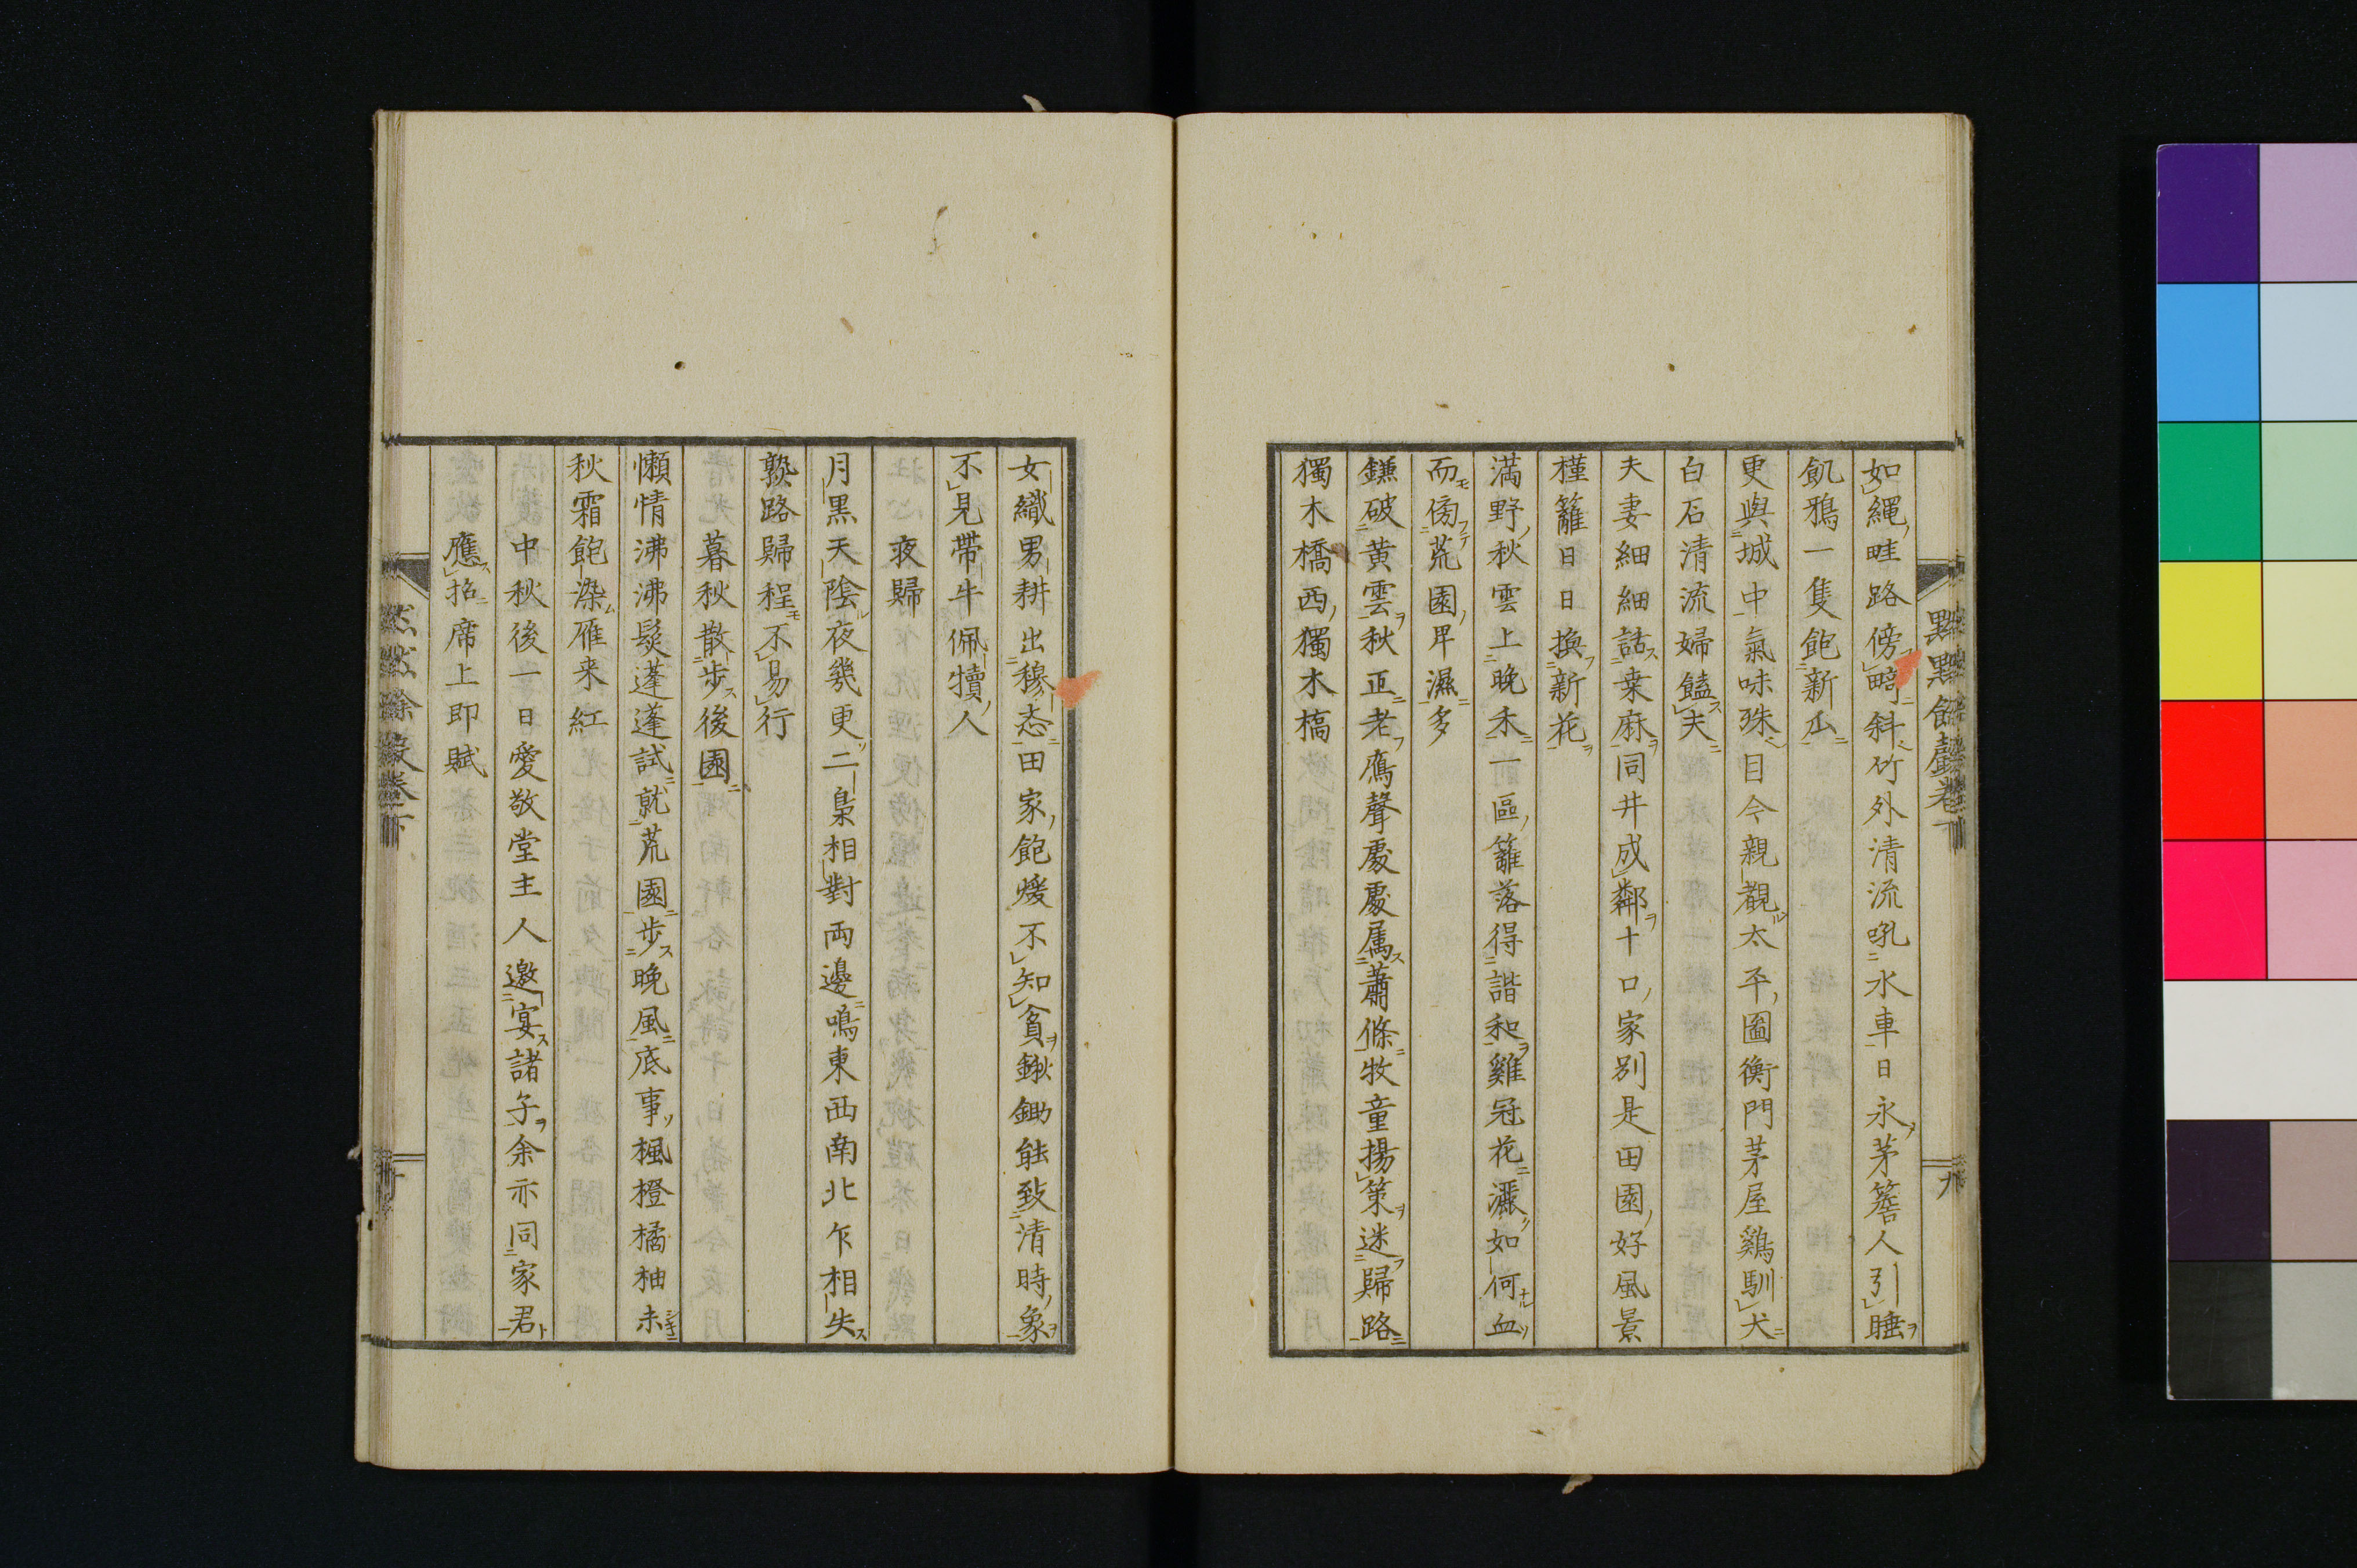 黙黙餘聲卷下
九
如繩畦路傍畸斜竹外清流吼水車日永茅簷人引睡
飢鴉一隻飽新瓜
更與城中氣味殊目今親覩太平圖衡門茅屋鷄馴犬
白石清流婦饁夫
夫妻細細話桒麻同井成鄰十口家別是田園好風景
槿籬日日換新花
満野秋雲上晩禾一區籬落得諧和雞冠花濺如何血
而傍荒園卑濕多
鎌破黄雲秋正老鴈聲處處属蕭條牧童揚策迷歸路
獨木橋西獨木槁
女織男耕出穆态田家飽煖不知貧鍬鋤能致清時象
不見帶牛佩犢人
夜歸
月黒天陰夜幾更二梟相對両邊鳴東西南北乍相失
歸程不易行
暮秋散步後園
懶情沸沸髮蓬蓬試就荒園步晩風底事楓橙橘柚未
秋霜飽染雁来紅
中秋後一日愛敬堂主人邀宴諸子余亦同家君
應招席上即賦